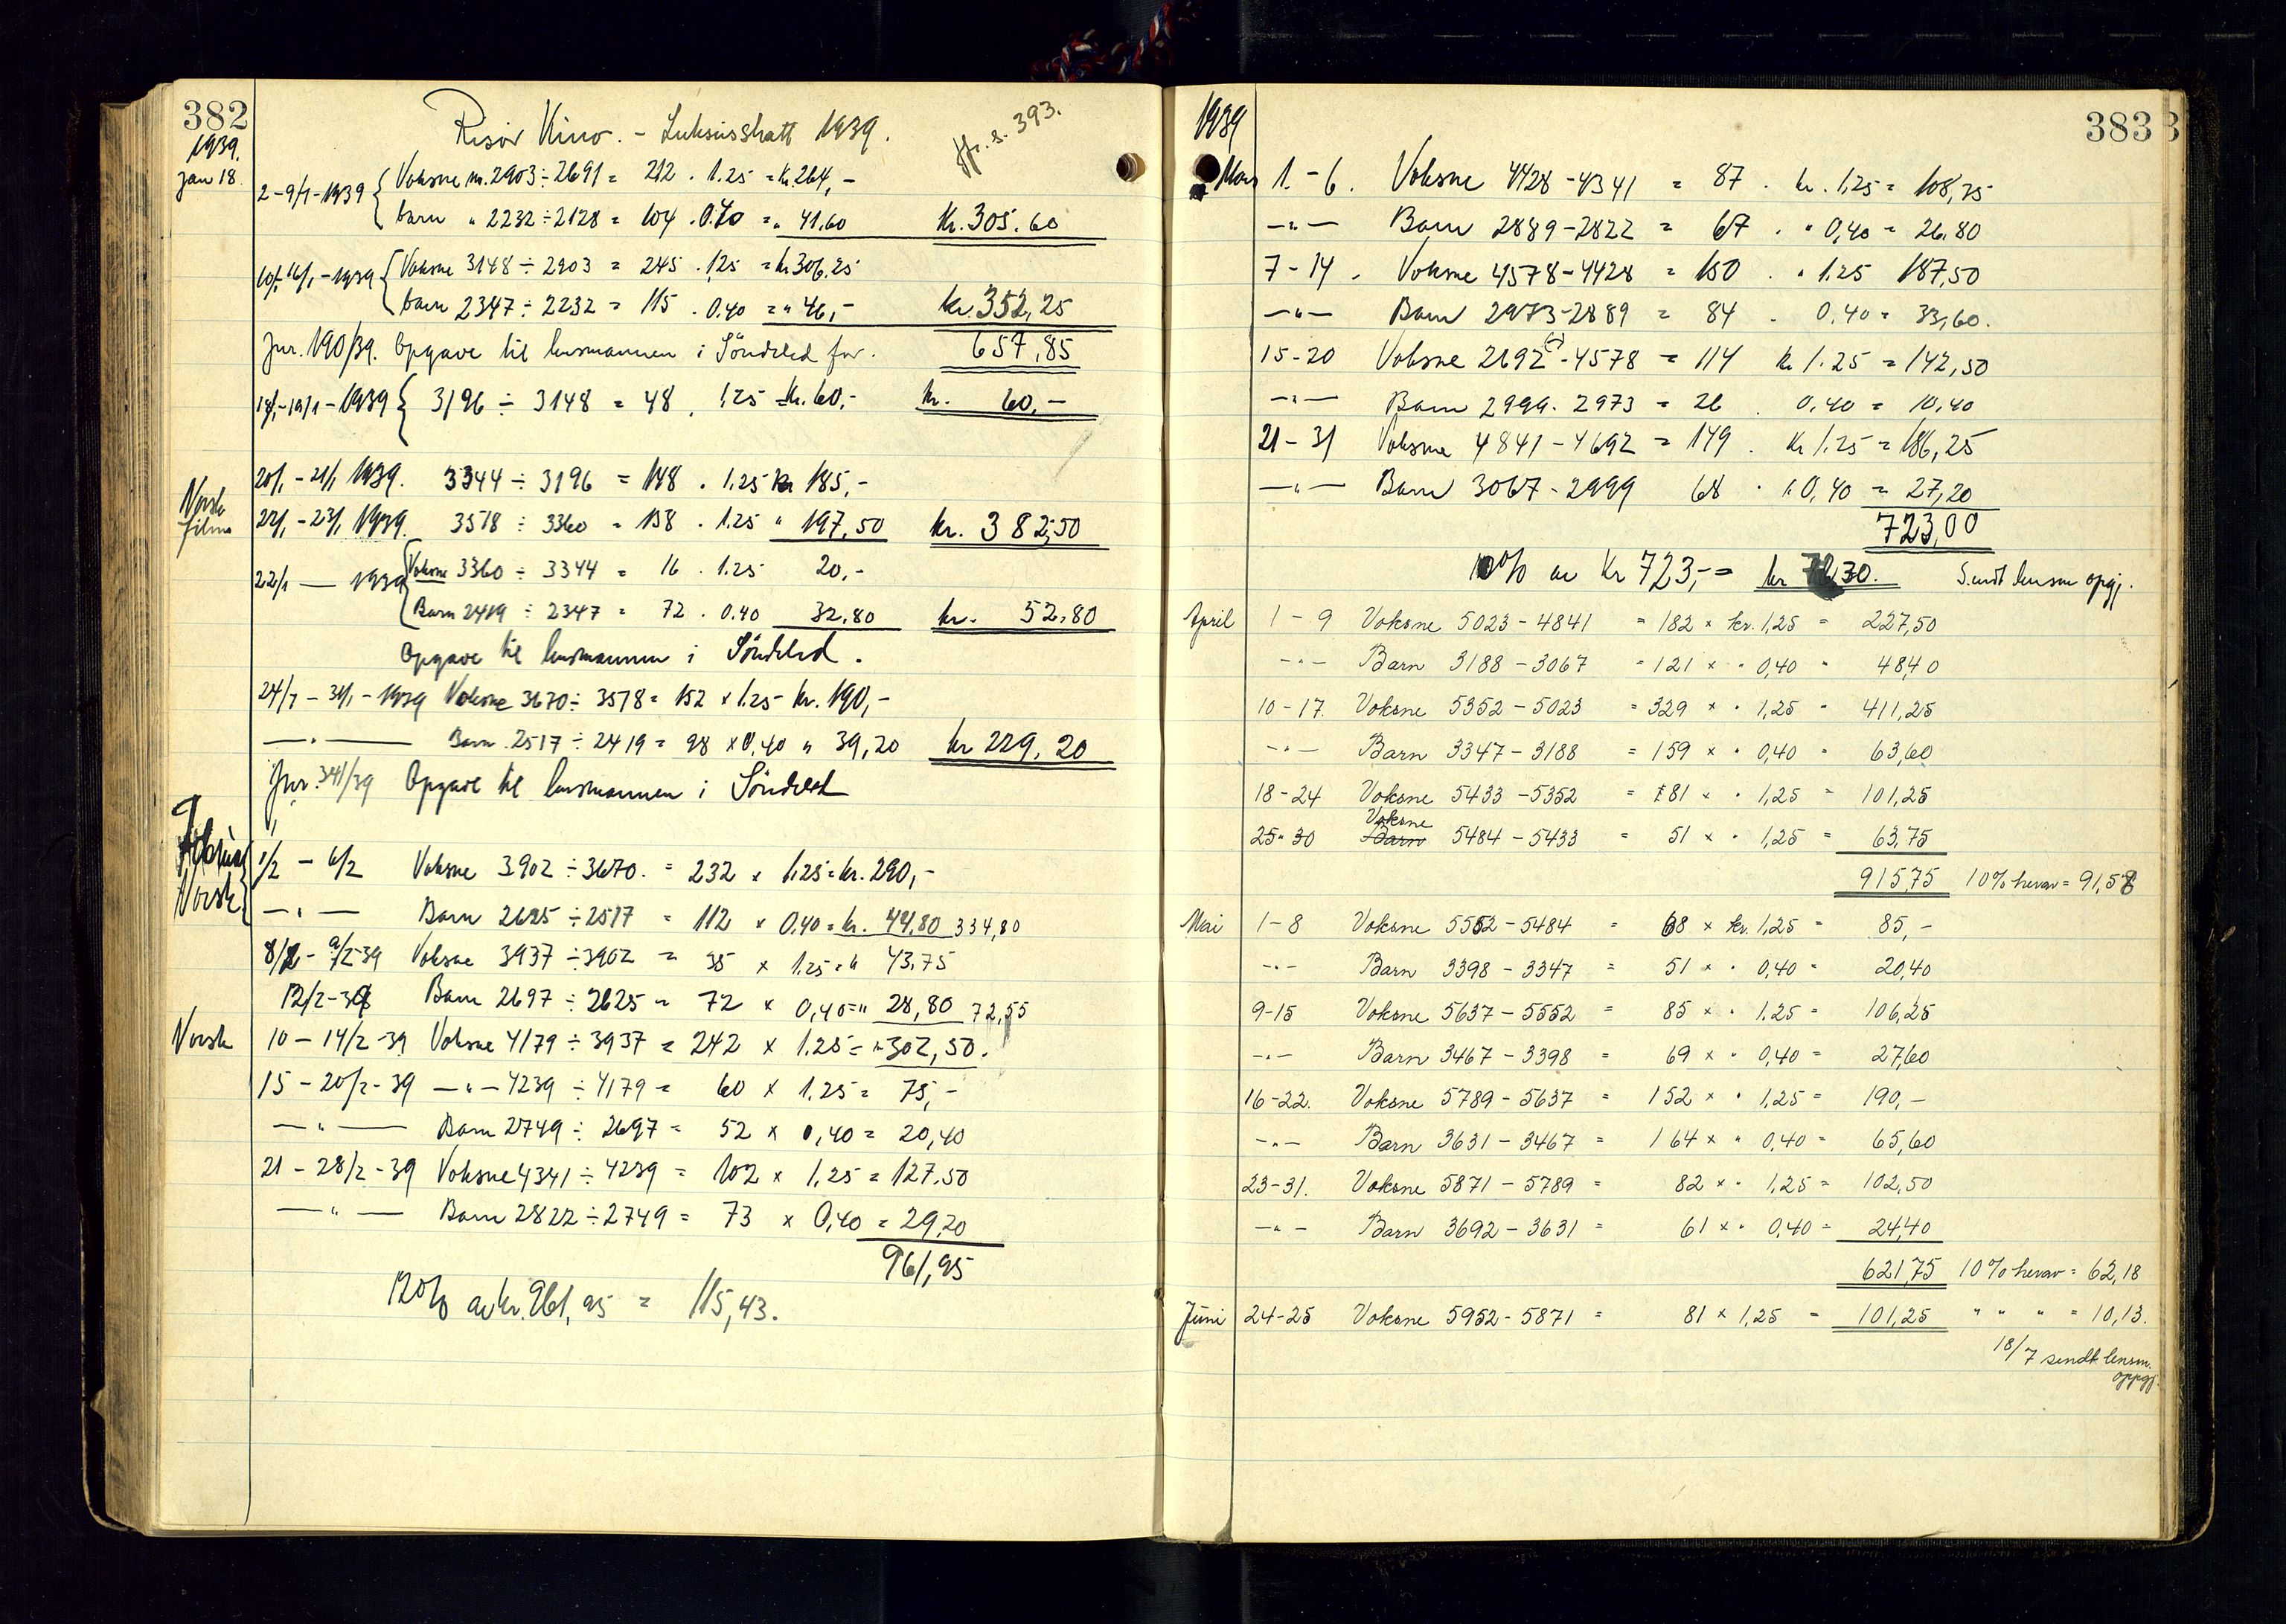 382
1939.
Risør Kino. - Luksusskatt 1939.
jfr. s. 393.
Jan 18.
2-9/1-1939 { Voksne nr. 2903 ÷ 2691 = 212 . 1.25 = Kr. 264,-
barn " 2232 ÷ 2128 = 104 . 0.40 = " 41,60 Kr. 305.60
10/1-16/1-1939 { Voksne 3148 ÷ 2903 = 245 . 1,25 = kr 306,25
barn 2347 ÷ 2232 = 115 . 0.40 = " 46,- kr. 352,25
Jnr. 190/39. Opgave til lensmannen i Söndeled for. 657,85
18/1-19/1-1939 { 3196 ÷ 3148 = 48 . 1.25 = Kr. 60,- kr. 60,-
20/1-21/1 1939. 3344 ÷ 3196 = 148 . 1.25 Kr 185,-
Norsk film
22/1-23/1 1939. 3518 ÷ 3360 = 158 . 1.25 " 197,50 kr. 382,50
22/1 — 1939 { Voksne 3360 ÷ 3344 = 16 . 1.25 20,-
Barn 2419 ÷ 2347 = 72 . 0.40 32.80 kr. 52,80
Opgave til lensmannen i Söndeled.
24/1-31/1-1939 Voksne 3670 ÷ 3518 = 152 x 1.25 kr. 190,-
— " — Barn 2517 ÷ 2419 = 98 x 0,40 " 39,20 kr 229,20
Jnr. 341/39 Opgave til lensmannen i Söndeled
Februar
Norsk {
1/2 - 6/2 Voksne 3902 ÷ 3670. = 232 x 1.25 = kr. 290,-
— " — Barn 2625 ÷ 2517 = 112 x 0,40 = kr. 44,80 334,80
8/2 - 9/2-39 Voksne 3937 ÷ 3902 = 35 x 1.25 = " 43,75
12/2-39 Barn 2697 ÷ 2625 = 72 x 0,40 = " 28,80 72,55
Norsk 10 - 14/2-39 Voksne 4179 ÷ 3937 = 242 x 1.25 = " 302,50.
15 - 20/2-39 — " — 4239 ÷ 4179 = 60 x 1.25 = 75,-
— " — Barn 2749 ÷ 2697 = 52 x 0,40 = 20,40
21 - 28/2-39 Voksne 4341 ÷ 4239 = 102 x 1.25 = 127.50
— " — Barn 2822 ÷ 2749 = 73 x 0,40 = 29,20
961,95
12% av kr. 961,95 = 115,43.
1939
383
Mars 1.-6. Voksne 4428 - 4341 = 87 . kr. 1,25 = 108,75
— " — Barn 2889 - 2822 = 67 . " 0,40 = 26.80
7-14. Voksne 4578 - 4428 = 150 . " 1.25 187,50
— " — Barn 2973 - 2889 = 84 . 0,40 = 33,60.
15-20 Voksne 2692 - 4578 = 114 kr 1.25 = 142,50
— " — Barn 2999. 2973 = 26 . 0,40 = 10,40
21-31 Voksne 4841 - 4692 = 149 . Kr 1.25 = 186,25
— " — Barn 3067 - 2999 68 . " 0,40 = 27,20
723,00
10% av Kr 723,- = kr 72,30. Sendt lensm opgj.
April 1-9 Voksne 5023 - 4841 = 182 x kr. 1,25 = 227,50
— " — Barn 3188 - 3067 = 121 x " 0,40 = 48,40
10-17. Voksne 5352 - 5023 = 329 x " 1,25 = 411,25
— " — Barn 3347 - 3188 = 159 x " 0,40 = 63,60
18-24 Voksne 5433 - 5352 = 81 x " 1,25 = 101,25
Voksne
25-30 Barn 5484 - 5433 = 51 x " 1,25 = 63,75
915,75 10% herav = 91,58
Mai 1-8 Voksne 5552 - 5484 = 68 x kr. 1,25 = 85,-
— " — Barn 3398 - 3347 = 51 x " 0,40 = 20,40
9-15 Voksne 5637 - 5552 = 85 x " 1,25 = 106,25
— " — Barn 3467 - 3398 = 69 x " 0,40 = 27,60
16-22. Voksne 5789 - 5637 = 152 x " 1,25 = 190,-
— " — Barn 3631 - 3467 = 164 x " 0,40 = 65,60
23-31. Voksne 5871 - 5789 = 82 x " 1,25 = 102,50
— " — Barn 3692 - 3631 = 61 x " 0,40 = 24,40
621,75 10% herav = 62,18
Juni 24-25 Voksne 5952 - 5871 = 81 x 1,25 = 101,25 " " " = 10,13.
18/7 sendt lensm.
oppgj.